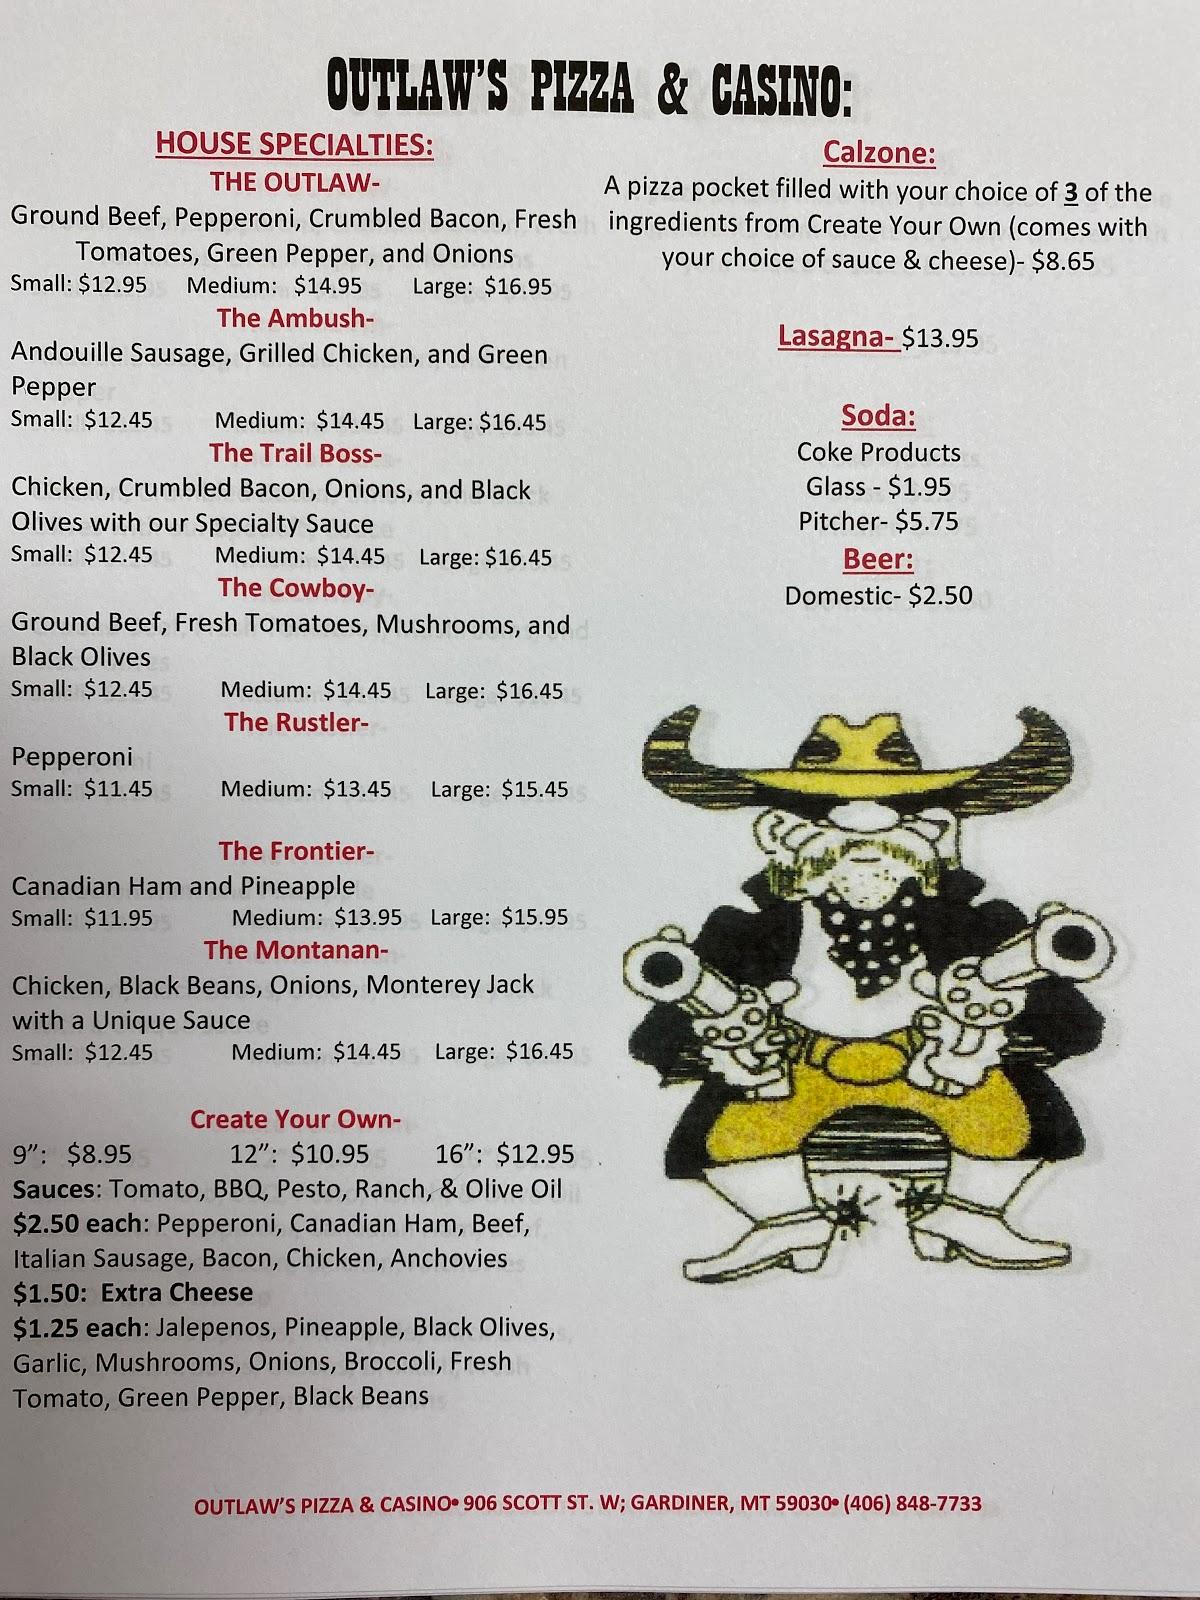 OUTLAW'S PIZZA & CASINO:
HOUSE SPECIALTIES:
THE OUTLAW-
Ground Beef, Pepperoni, Crumbled Bacon, Fresh
Tomatoes, Green Pepper, and Onions
Small: $12.95 Medium: $14.95 Large: $16.95
The Ambush-
Andouille Sausage, Grilled Chicken, and Green
Pepper
Small: $12.45 Medium: $14.45 Large: $16.45
The Trail Boss-
Chicken, Crumbled Bacon, Onions, and Black
Olives with our Specialty Sauce
Small: $12.45 Medium: $14.45 Large: $16.45
The Cowboy-
Ground Beef, Fresh Tomatoes, Mushrooms, and
Black Olives
Small: $12.45 Medium: $14.45 Large: $16.45
The Rustler-
Pepperoni
Small: $11.45 Medium: $13.45 Large: $15.45
The Frontier-
Canadian Ham and Pineapple
Small: $11.95 Medium: $13.95 Large: $15.95
The Montanan-
Chicken, Black Beans, Onions, Monterey Jack
with a Unique Sauce
Small: $12.45 Medium: $14.45 Large: $16.45
Create Your Own-
9”: $8.95 12”: $10.95 16”: $12.95
Sauces: Tomato, BBQ, Pesto, Ranch, & Olive Oil
$2.50 each: Pepperoni, Canadian Ham, Beef,
Italian Sausage, Bacon, Chicken, Anchovies
$1.50: Extra Cheese
$1.25 each: Jalepenos, Pineapple, Black Olives,
Garlic, Mushrooms, Onions, Broccoli, Fresh
Tomato, Green Pepper, Black Beans
Calzone:
A pizza pocket filled with your choice of 3 of the
ingredients from Create Your Own (comes with
your choice of sauce & cheese)- $8.65
Lasagna- $13.95
Soda:
Coke Products
Glass - $1.95
Pitcher- $5.75
Beer:
Domestic- $2.50
OUTLAW'S PIZZA & CASINO• 906 SCOTT ST. W; GARDINER, MT 59030• (406) 848-7733